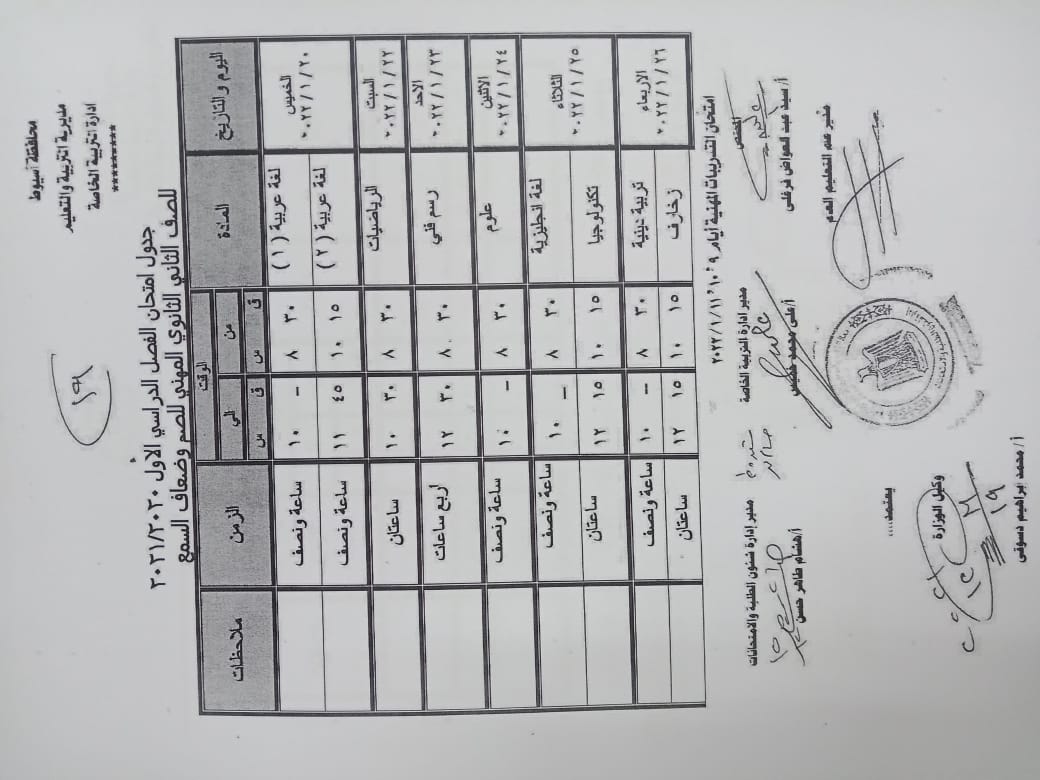 محافظة أسيوط
مديرية التربية والتعليم
ادارة التربية الخاصة
**********
١٩
جدول امتحان الفصل الدراسي الأول ٢٠٢١/٢٠٢٠
للصف الثاني الثانوي المهني للصم وضعاف السمع
اليوم والتاريخ المادة الوقت الزمن ملاحظات
من إلي
ق س ق س
الخميس ٢٠٢٢/١/٢٠ لغة عربية (١) ٣٠ ٨ - ١٠ ساعة ونصف
لغة عربية (٢) ١٥ ١٠ ٤٥ ١١ ساعة ونصف
السبت ٢٠٢٢/١/٢٢ الرياضيات ٣٠ ٨ ٣٠ ١٠ ساعتان
الاحد ٢٠٢٢/١/٢٣ رسم فني ٣٠ ٨ ٣٠ ١٢ اربع ساعات
الاثنين ٢٠٢٢/١/٢٤ علوم ٣٠ ٨ - ١٠ ساعة ونصف
الثلاثاء ٢٠٢٢/١/٢٥ لغة انجليزية ٣٠ ٨ - ١٠ ساعة ونصف
تكنولوجيا ١٥ ١٠ ١٥ ١٢ ساعتان
الاربعاء ٢٠٢٢/١/٢٦ تربية دينية ٣٠ ٨ - ١٠ ساعة ونصف
زخارف ١٥ ١٠ ١٥ ١٢ ساعتان
امتحان التدريبات المهنية أيام ٩، ١٠، ٢٠٢٢/١/١١
المختص مدير ادارة التربية الخاصة مدير إدارة شئون الطلبة والامتحانات
أ/سيد عبد العواض فرغلي أ/علي محمد خميس أ/هشام طاهر حسن
مدير عام التعليم العام
يعتمد،،،،
وكيل الوزارة
أ/محمد إبراهيم دسوقي